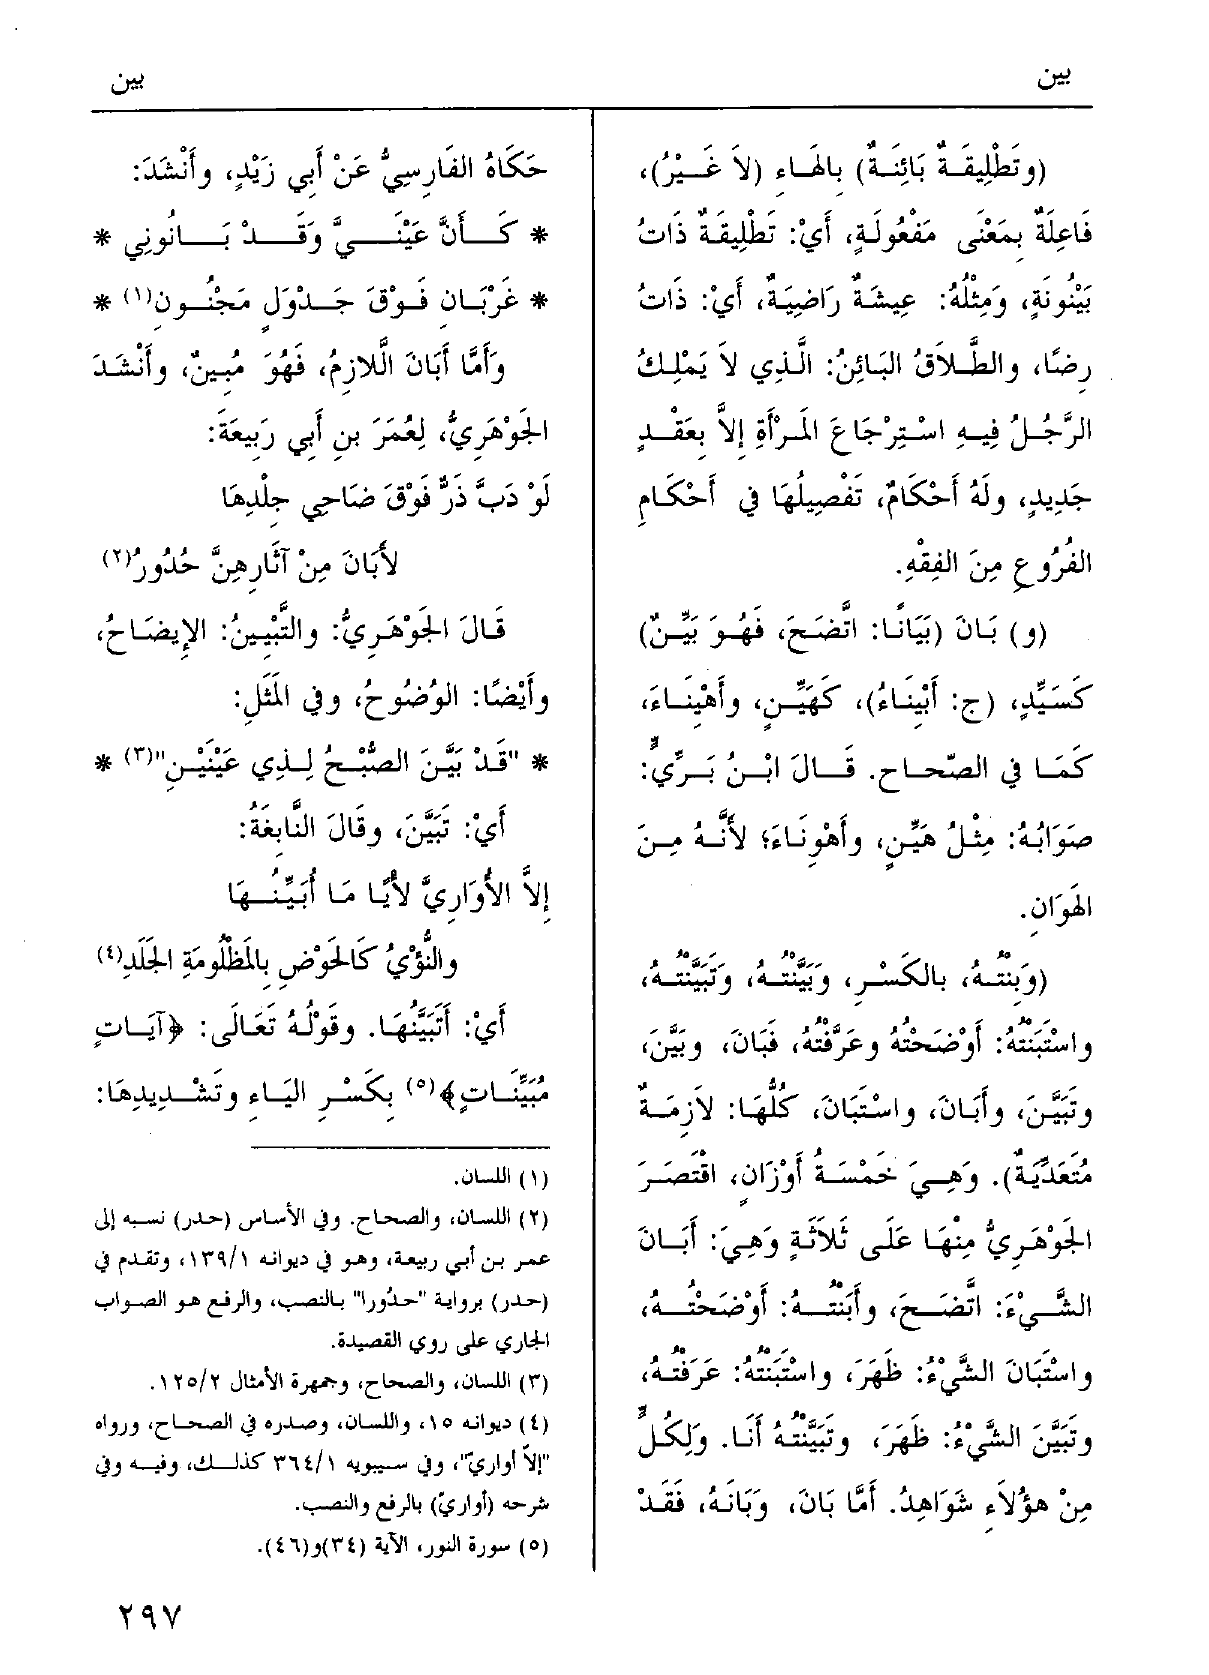 بين
بين
(وتَطْلِيقَةٌ بَائِنَةٌ) بِالهَاءِ (لاَ غَيْرُ)،
فَاعِلَةٌ بِمَعْنَى مَفْعُولَةٍ، أَيْ: تَطْلِيقَةٌ ذَاتُ
بَيْنُونَةٍ، وَمِثْلُهُ: عِيشَةٌ رَاضِيَةٌ، أَيْ: ذَاتُ
رِضًا، والطَّلاَقُ البَائِنُ: الَّذِي لاَ يَمْلِكُ
الرَّجُلُ فِيهِ اسْتِرْجَاعَ المَرْأَةِ إِلاَّ بِعَقْدٍ
جَدِيدٍ، ولَهُ أَحْكَامٌ، تَفْصِيلُهَا فِي أَحْكَامِ
الفُرُوعِ مِنَ الفِقْهِ.
(و) بَانَ (بَيَانًا: اتَّضَحَ، فَهُوَ بَيِّنٌ)
كَسَيِّدٍ، (ج: أَبْيِنَاءُ)، كَهَيِّنٍ، وأَهْيِنَاءَ،
كَمَا فِي الصّحَاحِ. قَالَ ابْنُ بَرِّيٍّ:
صَوَابُهُ: مِثْلُ هَيِّنٍ، وأَهْوِنَاءَ؛ لأَنَّهُ مِنَ
الهَوَانِ.
(وَبِنْتُهُ، بالكَسْرِ، وَبَيَّنْتُهُ، وَتَبَيَّنْتُهُ،
واسْتَبَنْتُهُ: أَوْضَحْتُهُ وعَرَّفْتُهُ، فَبَانَ، وبَيَّنَ،
وتَبَيَّنَ، وأَبَانَ، واسْتَبَانَ، كُلُّهَا: لاَزِمَةٌ
مُتَعَدِّيَةٌ). وَهِيَ خَمْسَةُ أَوْزَانٍ، اقْتَصَرَ
الجَوْهَرِيُّ مِنْهَا عَلَى ثَلاَثَةٍ وَهِيَ: أَبَانَ
الشَّيْءُ: اتَّضَحَ، وأَبَنْتُهُ: أَوْضَحْتُهُ،
واسْتَبَانَ الشَّيْءُ: ظَهَرَ، واسْتَبَنْتُهُ: عَرَفْتُهُ،
وتَبَيَّنَ الشَّيْءُ: ظَهَرَ، وتَبَيَّنْتُهُ أَنَا. وَلِكُلٍّ
مِنْ هؤُلاَءِ شَوَاهِدُ. أَمَّا بَانَ، وَبَانَهُ، فَقَدْ
حَكَاهُ الفَارِسِيُّ عَنْ أَبِي زَيْدٍ، وأَنْشَدَ:
* كَأَنَّ عَيْنَيَّ وَقَدْ بَانُونِي *
* غَرْبَانِ فَوْقَ جَدْوَلٍ مَجْنُونِ(١) *
وَأَمَّا أَبَانَ الَّلازِمُ، فَهُوَ مُبِينٌ، وأَنْشَدَ
الجَوْهَرِيُّ، لِعُمَرَ بنِ أَبِي رَبِيعَةَ:
لَوْ دَبَّ ذَرٌّ فَوْقَ ضَاحِي جِلْدِهَا
لأَبَانَ مِنْ آثَارِهِنَّ حُدُورُ(٢)
قَالَ الجَوْهَرِيُّ: والتَّبْيِينُ: الإِيضَاحُ،
وأَيْضًا: الوُضُوحُ، وفِي المَثَلِ:
* "قَدْ بَيَّنَ الصُّبْحُ لِذِي عَيْنَيْنِ"(٣) *
أَيْ: تَبَيَّنَ، وقَالَ النَّابِغَةُ:
إِلاَّ الأَوَارِيَّ لأْيًا مَا أُبَيِّنُهَا
والنُّؤْيُ كَالحَوْضِ بِالمَظْلُومَةِ الجَلَدِ(٤)
أَيْ: أَتَبَيَّنُهَا. وقَوْلُهُ تَعَالَى: ﴿آيَاتٍ
مُبَيِّنَاتٍ﴾(٥) بِكَسْرِ اليَاءِ وتَشْدِيدِهَا:
(١) اللسان.
(٢) اللسان، والصحاح. وفي الأساس (حدر) نسبه إلى
عمر بن أبي ربيعة، وهو في ديوانه ١٣٩/١، وتقدم في
(حدر) برواية "حدُورا" بالنصب، والرفع هو الصواب
الجاري على روي القصيدة.
(٣) اللسان، والصحاح، وجمهرة الأمثال ١٢٥/٢.
(٤) ديوانه ١٥، واللسان، وصدره في الصحاح، ورواه
"إلاّ أواريّ"، وفي سيبويه ٣٦٤/١ كذلك، وفيه وفي
شرحه (أواريّ) بالرفع والنصب.
(٥) سورة النور، الآية (٣٤)و(٤٦).
٢٩٧